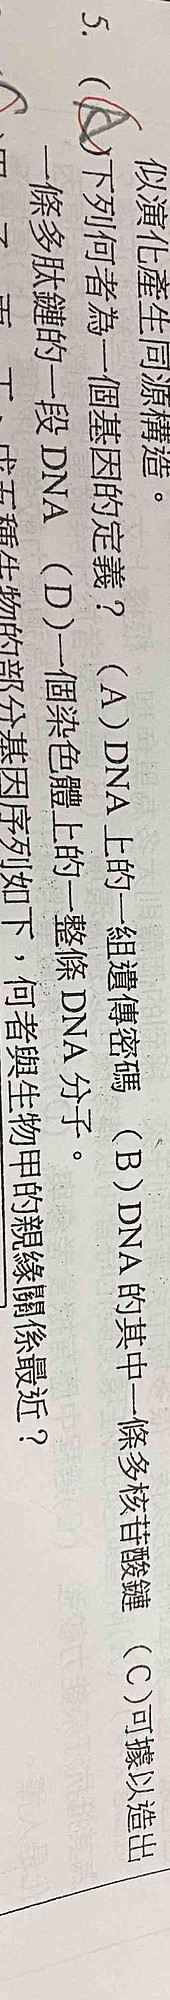 似演化產生同源構造。
5. (A)下列何者為一個基因的定義？ (A)DNA上的一組遺傳密碼 (B)DNA的其中一條多核苷酸鏈 (C)可據以造出
一條多肽鏈的一段DNA (D)一個染色體上的一整條DNA分子。
五種生物的部分基因序列如下，何者與生物甲的親緣關係最近？